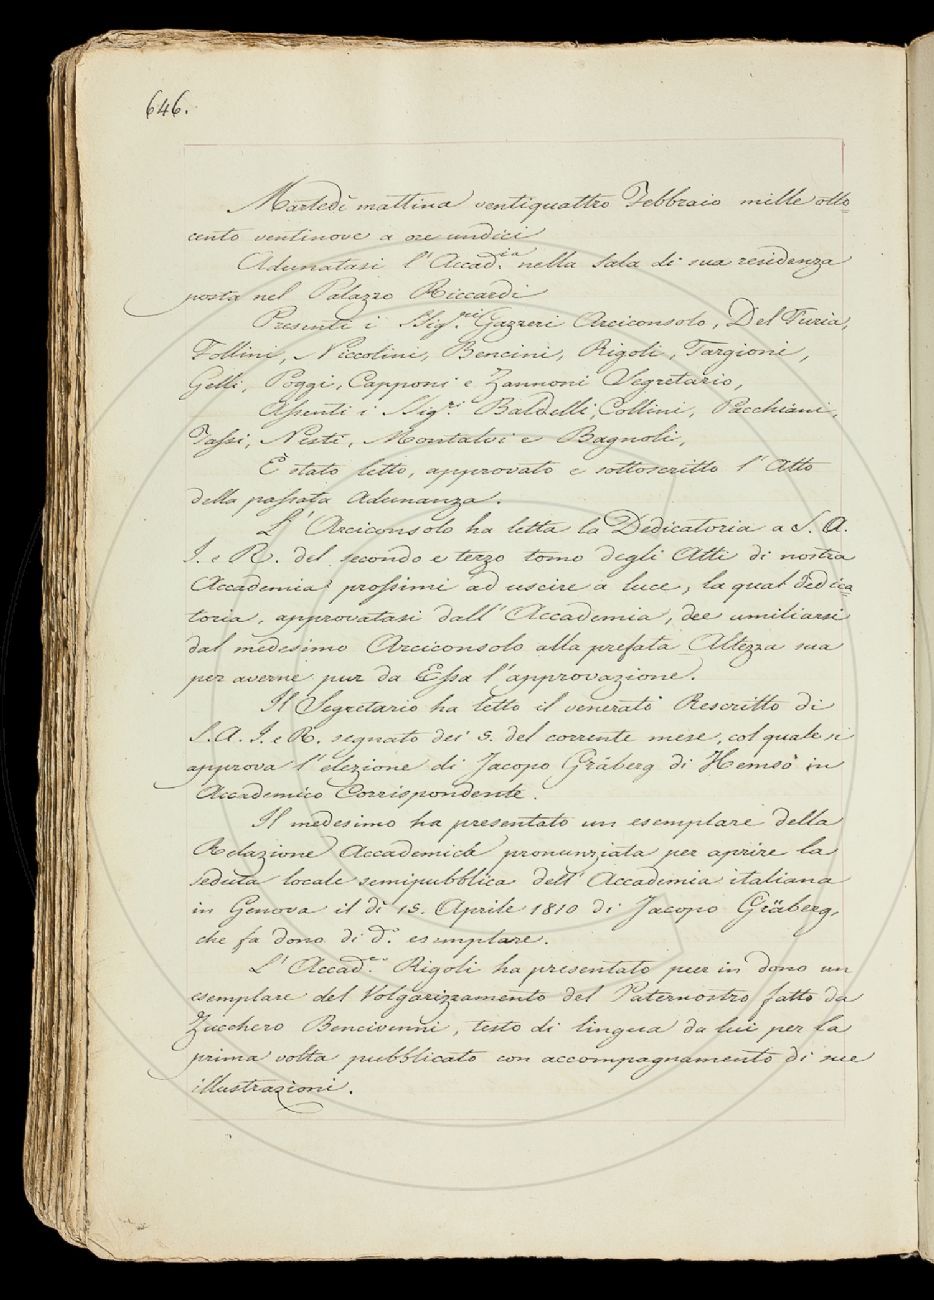 646.
Martedì mattina ventiquattro Febbraio mille otto=
cento ventinove a ore undici
Adunatasi l'Accad.ia nella Sala di sua residenza
posta nel Palazzo Riccardi
Presenti i Sig.ri Gazzeri Arciconsolo, Del Furia,
Follini, Niccolini, Bencini, Rigoli, Targioni,
Gelli, Poggi, Capponi e Zannoni Segretario,
Assenti i Sig.ri Baldelli, Collini, Pacchiani,
Tassi, Nesti, Montalvi e Bagnoli,
È stato letto, approvato e sottoscritto l'Atto
della passata Adunanza.
L'Arciconsolo ha letta la Dedicatoria a S. A.
I. e R. del secondo e terzo tomo degli Atti di nostra
Accademia prossimi ad uscire a luce, la qual dedica=
toria, approvatasi dall'Accademia, dee umiliarsi
dal medesimo Arciconsolo alla prefata Altezza sua
per averne pur da Essa l'approvazione.
Il Segretario ha letto il venerato Rescritto di
S. A. I. e R. segnato dei 5. del corrente mese, col quale si
approva l'elezione di Jacopo Gräberg di Hemsö in
Accademico Corrispondente.
Il medesimo ha presentato un esemplare della
Relazione Accademica pronunziata per aprire la
seduta locale semipubblica dell'Accademia italiana
in Genova il dì 15. Aprile 1810 di Jacopo Gräberg,
che fa dono di d.o esemplare.
L'Accad.co Rigoli ha presentato pur in dono un
esemplare del Volgarizzamento del Paternostro fatto da
Zucchero Bencivenni, testo di lingua da lui per la
prima volta pubblicato con accompagnamento di sue
illustrazioni.